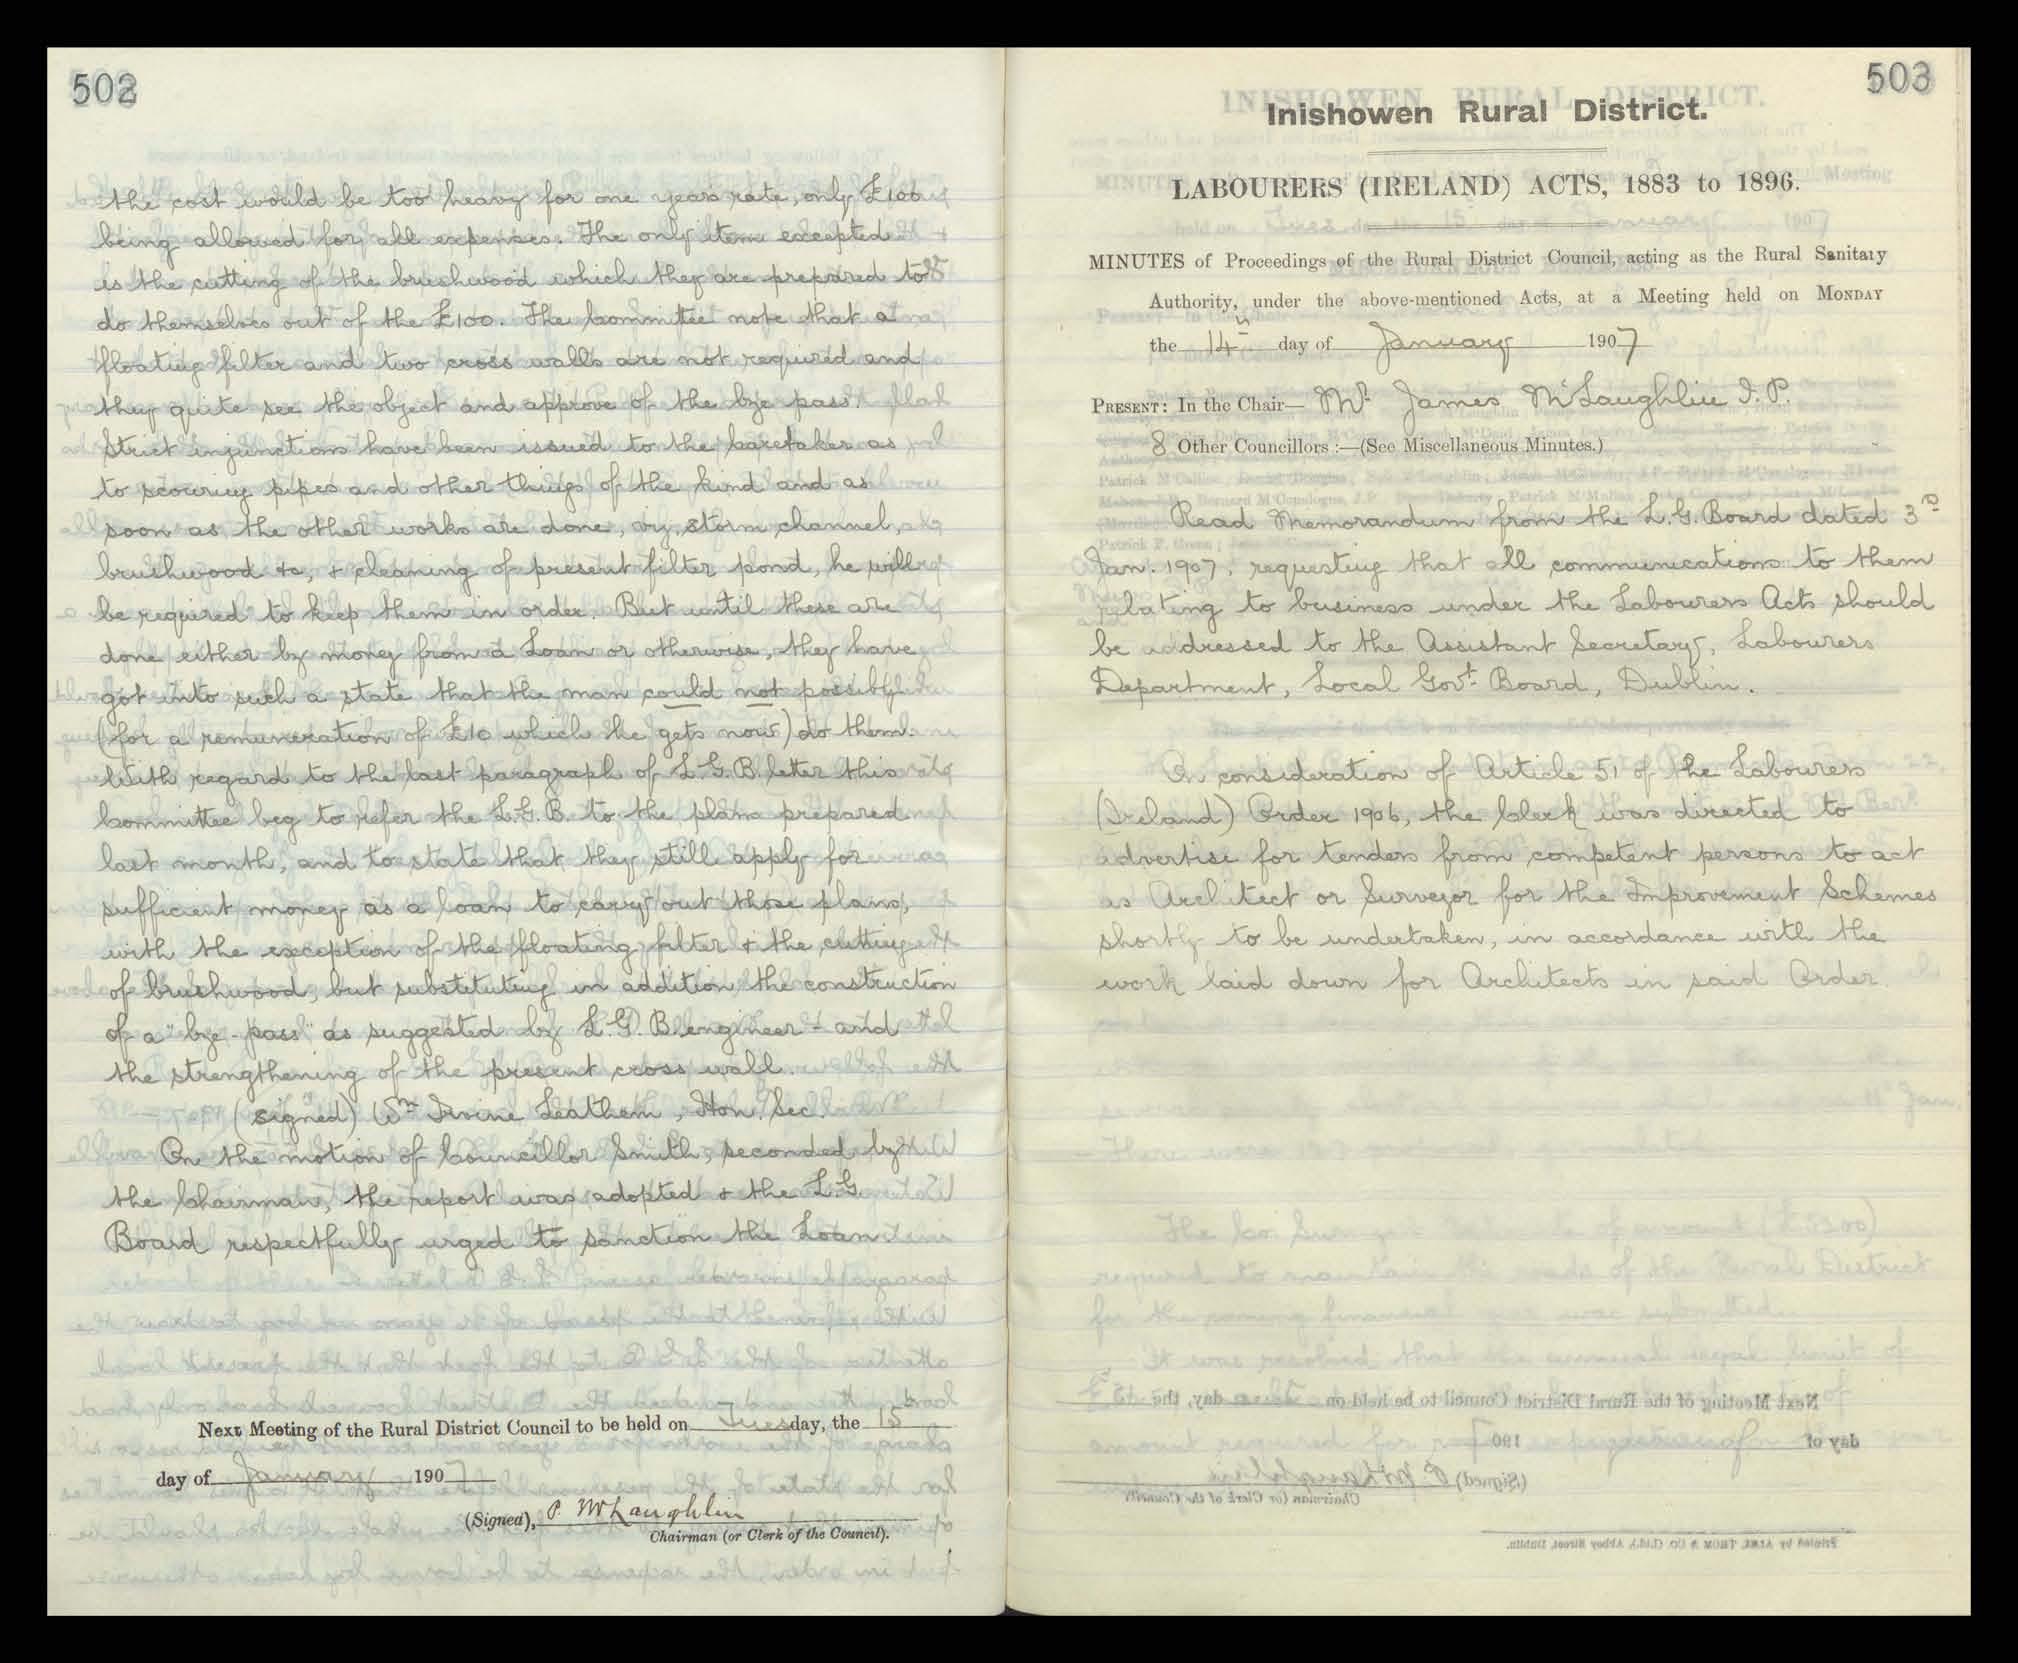 502
the cost would be too heavy for one years rate, only £100
being allowed for all expenses. The only item excepted
is the cutting of the brushwood which they are prepared to
do themselves out of the £100. The Committee note that a
floating filter and two cross walls are not required and
they quite see the object and approve of the bye pass.
Strict injunctions have been issued to the caretaker as
to scouring pipes and other things of the kind and as
soon as the other works are done, viz, storm channel,
brushwood &c, & cleaning of present filter pond, he will
be required to keep them in order. But until these are
done either by money from a Loan or otherwise, they have
got into such a state that the man could not possibly
(for a remuneration of £10 which he gets now) do them.
With regard to the last paragraph of L.G.B. letter this
Committee beg to refer the L.G.B. to the plans prepared
last month, and to state that they still apply for
sufficient money as a loan to carry out those plans,
with the exception of the floating filter & the cutting
of brushwood, but substituting in addition the construction
of a "bye-pass" as suggested by L.G.B. engineer - and
the strengthening of the present cross wall.
(signed) Wm Irvine Leathem, Hon. Sec.
On the motion of Councillor Smith, seconded by
the Chairman, the report was adopted & the L.G.
Board respectfully urged to sanction the Loan
Next Meeting of the Rural District Council to be held on Tuesday, the 15th
day of January 1907
(Signed), P. McLaughlin
Chairman (or Clerk of the Council).
503
Inishowen Rural District.
LABOURERS (IRELAND) ACTS, 1883 to 1896.
MINUTES of Proceedings of the Rural District Council, acting as the Rural Sanitary
Authority, under the above-mentioned Acts, at a Meeting held on MONDAY
the 14th day of January 1907
PRESENT: In the Chair— Mr James McLaughlin J.P.
8 Other Councillors :—(See Miscellaneous Minutes.)
Read Memorandum from the L.G. Board dated 3rd
Jan. 1907, requesting that all communications to them
relating to business under the Labourers Acts should
be addressed to the Assistant Secretary, Labourers
Department, Local Govt Board, Dublin.
On consideration of Article 51 of the Labourers
(Ireland) Order 1906, the Clerk was directed to
advertise for tenders from competent persons to act
as Architect or Surveyor for the Improvement Schemes
shortly to be undertaken, in accordance with the
work laid down for Architects in said Order